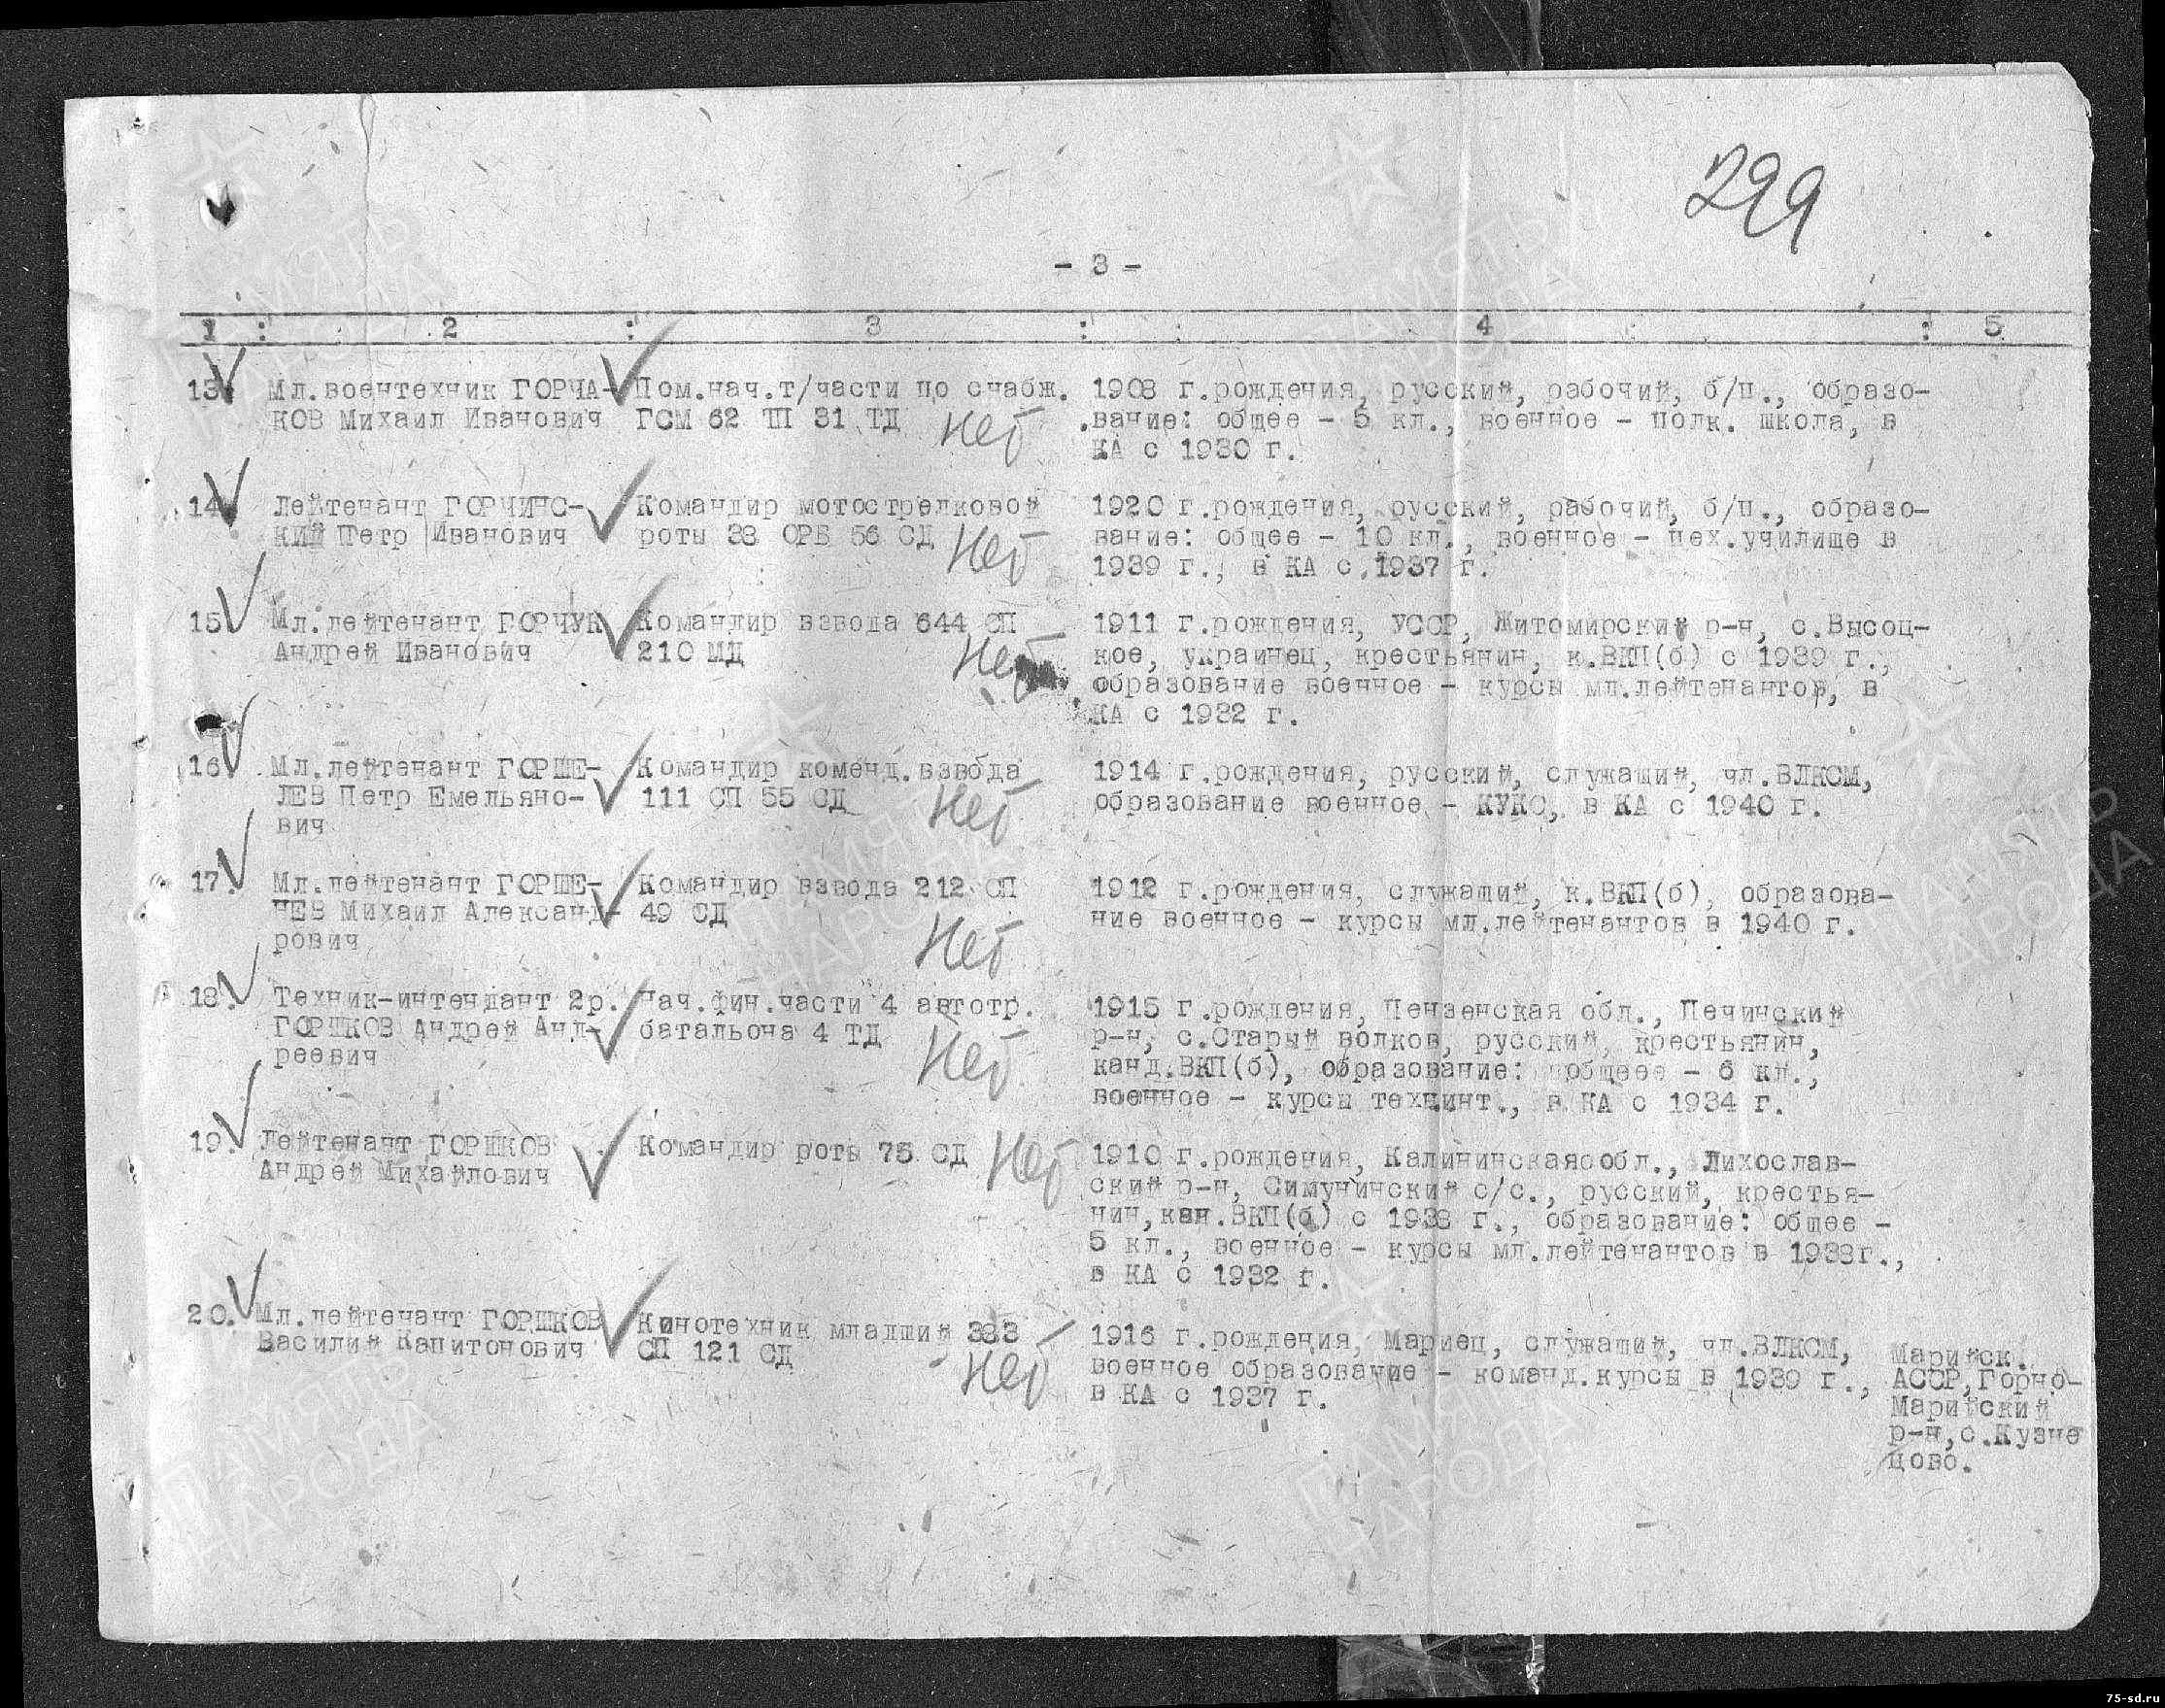 299
- 3 -
1 : 2 : 3 : 4 : 5
13. Мл.воентехник ГОРЧА- Пом.нач.т/части по снабж. 1908 г.рождения, русский, рабочий, б/п., образо-
КОВ Михаил Иванович ГСМ 62 ТП 31 ТД Нет вание: общее - 5 кл., военное - полк. школа, в
КА с 1930 г.
14. Лейтенант ГОРЧИНС- Командир мотострелковой 1920 г.рождения, русский, рабочий, б/п., образо-
КИЙ Петр Иванович роты 38 ОРБ 56 СД Нет вание: общее - 10 кл., военное - пех.училище в
1939 г., в КА с 1937 г.
15. Мл.лейтенант ГОРЧУК Командир взвода 644 СП 1911 г.рождения, УССР, Житомирский р-н, с.Высоц-
Андрей Иванович 210 МД Нет кое, украинец, крестьянин, к.ВКП(б) с 1939 г.,
образование военное - курсы мл.лейтенантов, в
КА с 1932 г.
16. Мл.лейтенант ГОРШЕ- Командир коменд.взвода 1914 г.рождения, русский, служащий, чл.ВЛКСМ,
ЛЕВ Петр Емельяно- 111 СП 55 СД Нет образование военное - КУКС, в КА с 1940 г.
вич
17. Мл.лейтенант ГОРШЕ- Командир взвода 212 СП 1912 г.рождения, служащий, к.ВКП(б), образова-
НЕВ Михаил Александ- 49 СД Нет ние военное - курсы мл.лейтенантов в 1940 г.
рович
18. Техник-интендант 2р. Нач.фин.части 4 автотр. 1915 г.рождения, Пензенская обл., Печинский
ГОРШКОВ Андрей Анд- батальона 4 ТД Нет р-н, с.Старый волков, русский, крестьянин,
реевич канд.ВКП(б), образование: общеее - 6 кл.,
военное - курсы техчинт., в КА с 1934 г.
19. Лейтенант ГОРШКОВ Командир роты 75 СД Нет 1910 г.рождения, Калининская обл., Лихослав-
Андрей Михайлович ский р-н, Симунинский с/с., русский, крестья-
нин, кан.ВКП(б) с 1938 г., образование: общее -
5 кл., военное - курсы мл.лейтенантов в 1938г.,
в КА с 1932 г.
20. Мл.лейтенант ГОРШКОВ Кинотехник младший 383 1916 г.рождения, Мариец, служащий, чл.ВЛКСМ, Марийск.
Василий Капитонович СП 121 СД Нет военное образование - команд.курсы в 1939 г., АССР,Горно-
в КА с 1937 г. Марийский
р-н,с.Кузне
цово.
ПАМЯТЬ
НАРОДА
75-sd.ru